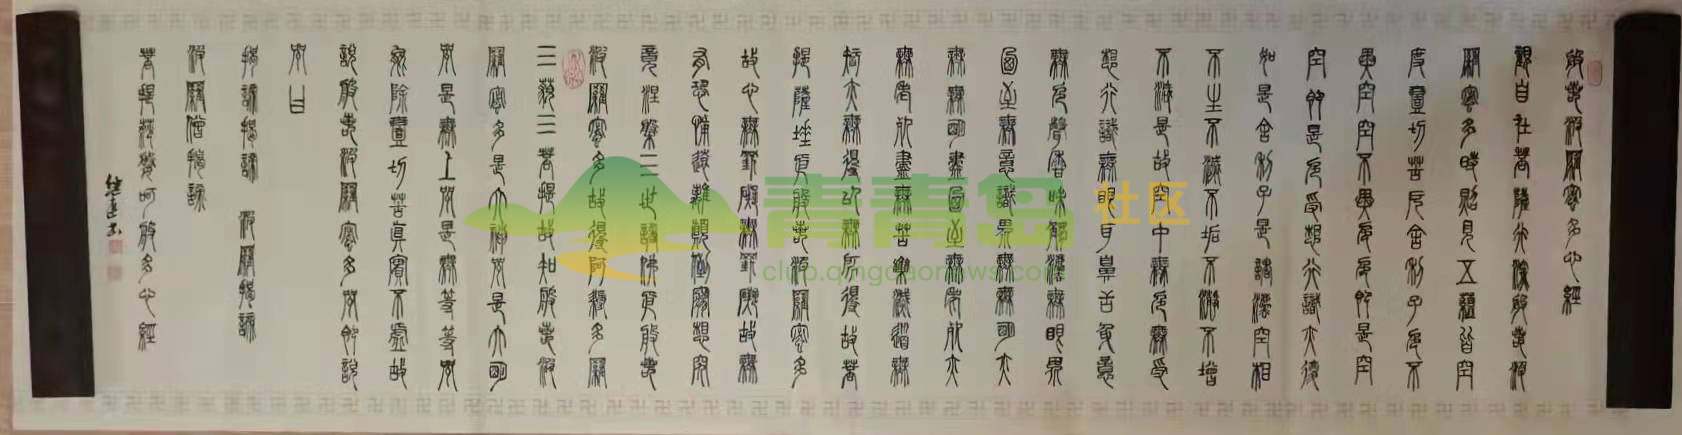 般若波羅密多心經
觀自在菩薩行深般若波
羅密多時照見五蘊皆空
度壹切苦厄舍利子色不
異空空不異色色即是空
空即是色受想行識亦復
如是舍利子是諸法空相
不生不滅不垢不淨不增
不減是故空中無色無受
想行識無眼耳鼻舌身意
無色聲香味觸法無眼界
乃至無意識界無無明亦
無無明盡乃至無老死亦
無老死盡無苦集滅道無
智亦無得以無所得故菩
提薩埵依般若波羅密多
故心無罣礙無罣礙故無
有恐怖遠離顛倒夢想究
竟涅槃三世諸佛依般若
波羅密多故得阿耨多羅
三藐三菩提故知般若波
羅密多是大神咒是大明
咒是無上咒是無等等咒
能除壹切苦真實不虛故
說般若波羅密多咒即說
咒曰
揭諦揭諦 波羅揭諦
波羅僧揭諦
菩提薩婆呵般多心經
青青岛社区
club.qingdaonews.com